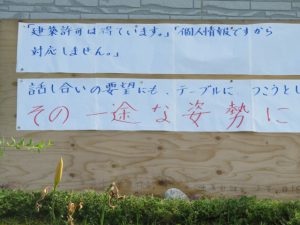 「建築許可は得ています。」「個人情報ですから
対応しません。」
話し合いの要望にも、テーブルに つこうとし
その一途な姿勢に